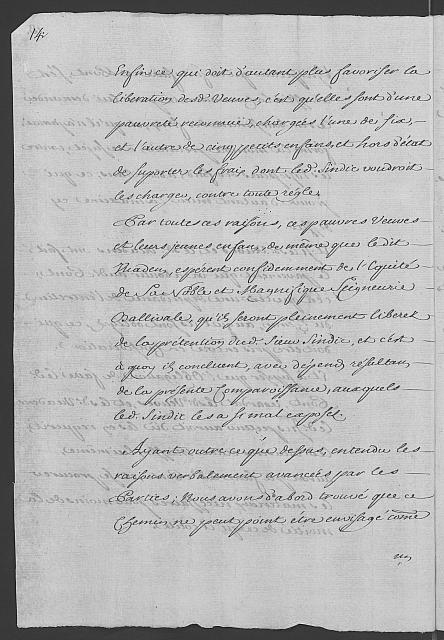 14.
Enfin ce qui doit d'autant plus favoriser la
liberation desd. Veuves, c'est qu'elles sont d'une
pauvreté reconnuë, chargées l'une de six,
et l'autre de cinq petits enfans, et hors d'état
de suporter les fraix dont led. Sindic voudroit
les charger, contre toute régle.
Par toutes ces raisons, ces pauvres Veuves
et leurs jeunes enfans, de même que ledit
espérent confidemment de l'Equité
de Sa Noble et Magnifique Seigneurie
Baillivale, qu'ils seront pleinement liberez
de la prétention dud. Sieur Sindic, et c'est
à quoy ils concluent, avec dépends resultan
de la présente Comparoissance, auxquels
led. Sindic les a si mal exposez.
Ayant outre ce que dessus, entendu les
raisons verbalement avancées par les
Parties; Nous avons d'abord trouvé que ce
Chemin ne peut point étre envisagé come
un